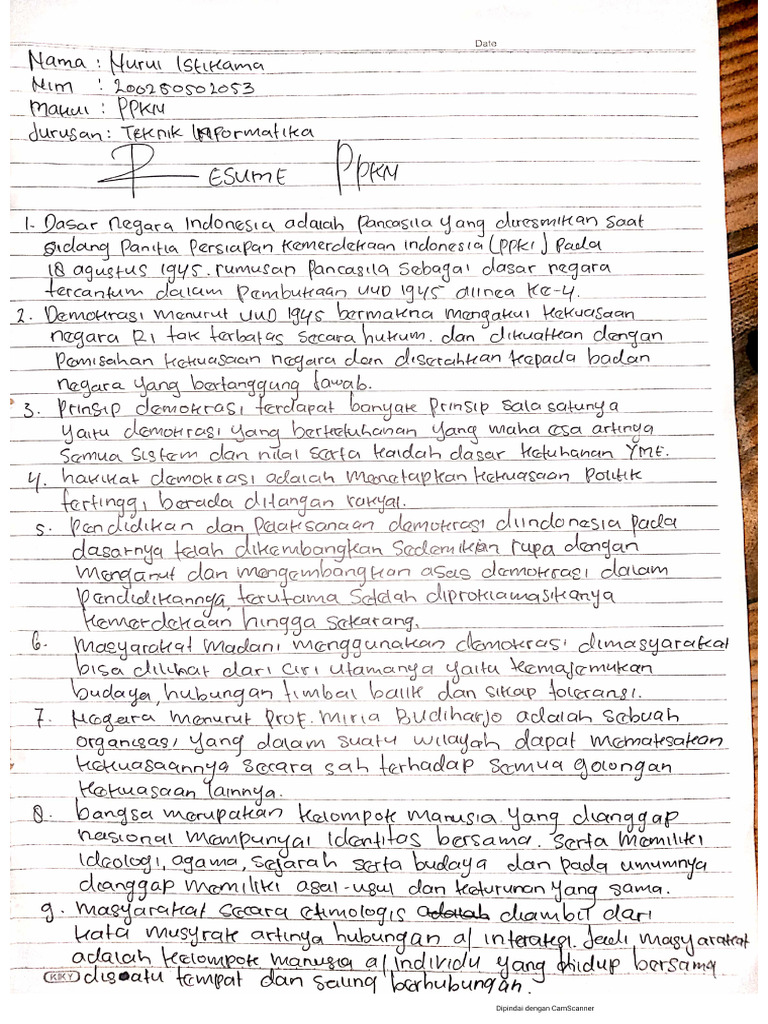 Date
Nama : Nurul Istikama
Nim : 200250502053
Makul : PPKN
Jurusan : Teknik Informatika
RESUME PPKN
1. Dasar negara Indonesia adalah pancasila yang diresmikan saat
sidang Panitia Persiapan Kemerdekaan Indonesia (PPKI) Pada
18 agustus 1945. rumusan Pancasila Sebagai dasar negara
tercantum dalam Pembukaan UUD 1945 alinea Ke-4.
2. Demokrasi menurut UUD 1945 bermakna mengakui Kekuasaan
negara RI tak terbatas secara hukum. dan dikuatkan dengan
Pemisahan Kekuasaan negara dan diserahkan kepada badan
negara yang bertanggung Jawab.
3. Prinsip demokrasi terdapat banyak Prinsip sala satunya
yaitu demokrasi yang berketuhanan yang maha esa artinya
Semua sistem dan nilai serta Kaidah dasar Ketuhanan YME.
4. hakikat demokrasi adalah menetapkan Kekuasaan Politik
tertinggi berada ditangan rakyat.
5. Pendidikan dan Pelaksanaan demokrasi diindonesia pada
dasarnya telah dikembangkan Sedemikian rupa dengan
menganut dan mengembangkan asas demokrasi dalam
Pendidikannya, terutama Setelah diproklamasikanya
Kemerdekaan hingga Sekarang.
6. Masyarakat Madani menggunakan demokrasi dimasyarakat
bisa dilihat dari Ciri utamanya yaitu Kemajemukan
budaya, hubungan timbal balik dan sikap toleransi.
7. Negara menurut Prof. Miria Budiharjo adalah Sebuah
organisasi yang dalam suatu wilayah dapat memaksakan
Kekuasaannya secara sah terhadap Semua golongan
Kekuasaan lainnya.
8. bangsa merupakan Kelompok manusia yang dianggap
nasional mempunyai Identitas bersama. Serta Memiliki
Ideologi, agama, Sejarah serta budaya dan pada umumnya
dianggap memiliki asal-usul dan Keturunan yang sama.
9. masyarakat secara etimologis adalah diambil dari
Kata musyrak artinya hubungan a/ interaksi. Jadi masyarakat
adalah Kelompok manusia a/ individu yang hidup bersama
KIKY disuatu tempat dan saling berhubungan.
Dipindai dengan CamScanner